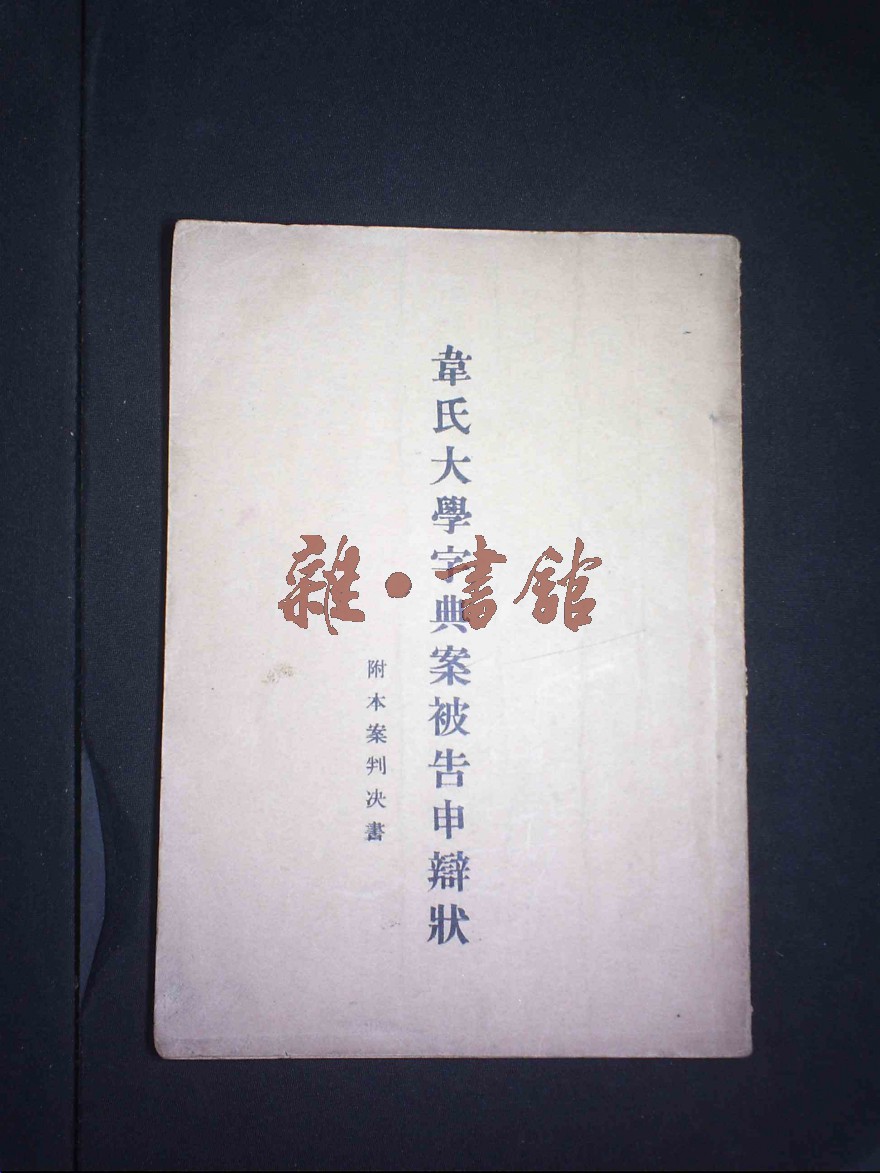 韋氏大學字典案被告申辯狀
附本案判决書
雜·書館